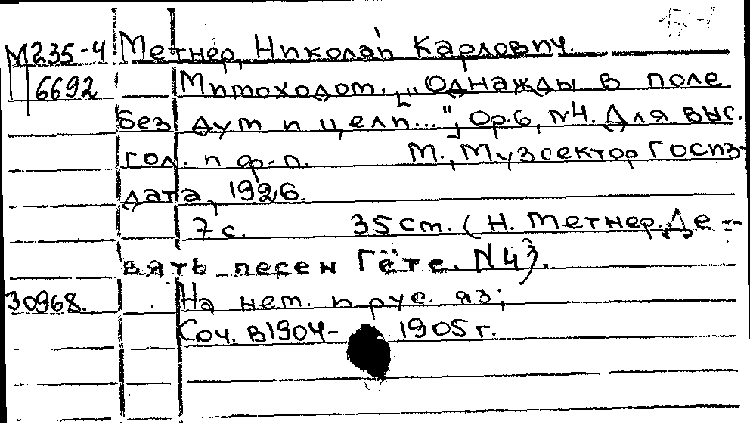 М235-4 Метнер, Николай Карлович
6692 Мимоходом. ["Однажды в поле
без дум и цели...", Ор.6, №4. Для выс.
гол. и ф-п. М., Музсектор Госиз-
дата, 1926.
7 с. 35 см. (Н. Метнер. Де-
вять песен Гёте. №4).
30968. На нем. и рус. яз;
Соч. в 1904- 1905 г.